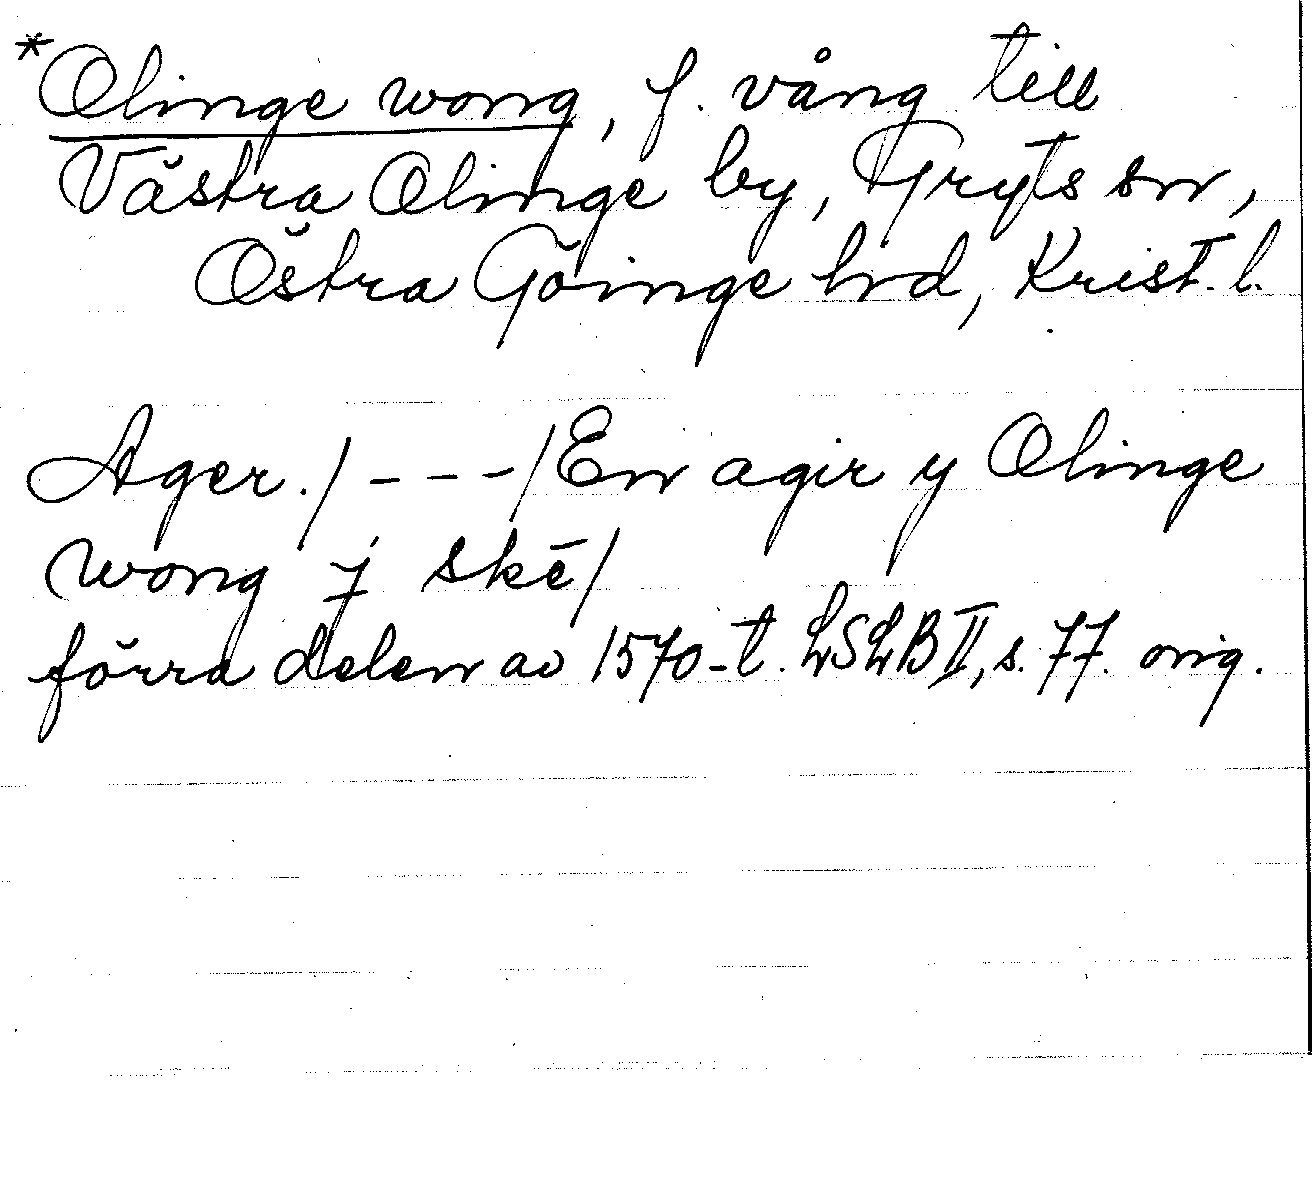 *Olinge wong, f. vång till
Västra Olinge by, Gryts sn,
Östra Göinge hd, Krist. l.
Ager./ - - -/En agir y Olinge
wong j skē/
förra delen av 1570-t. LSLB II, s. 77. orig.